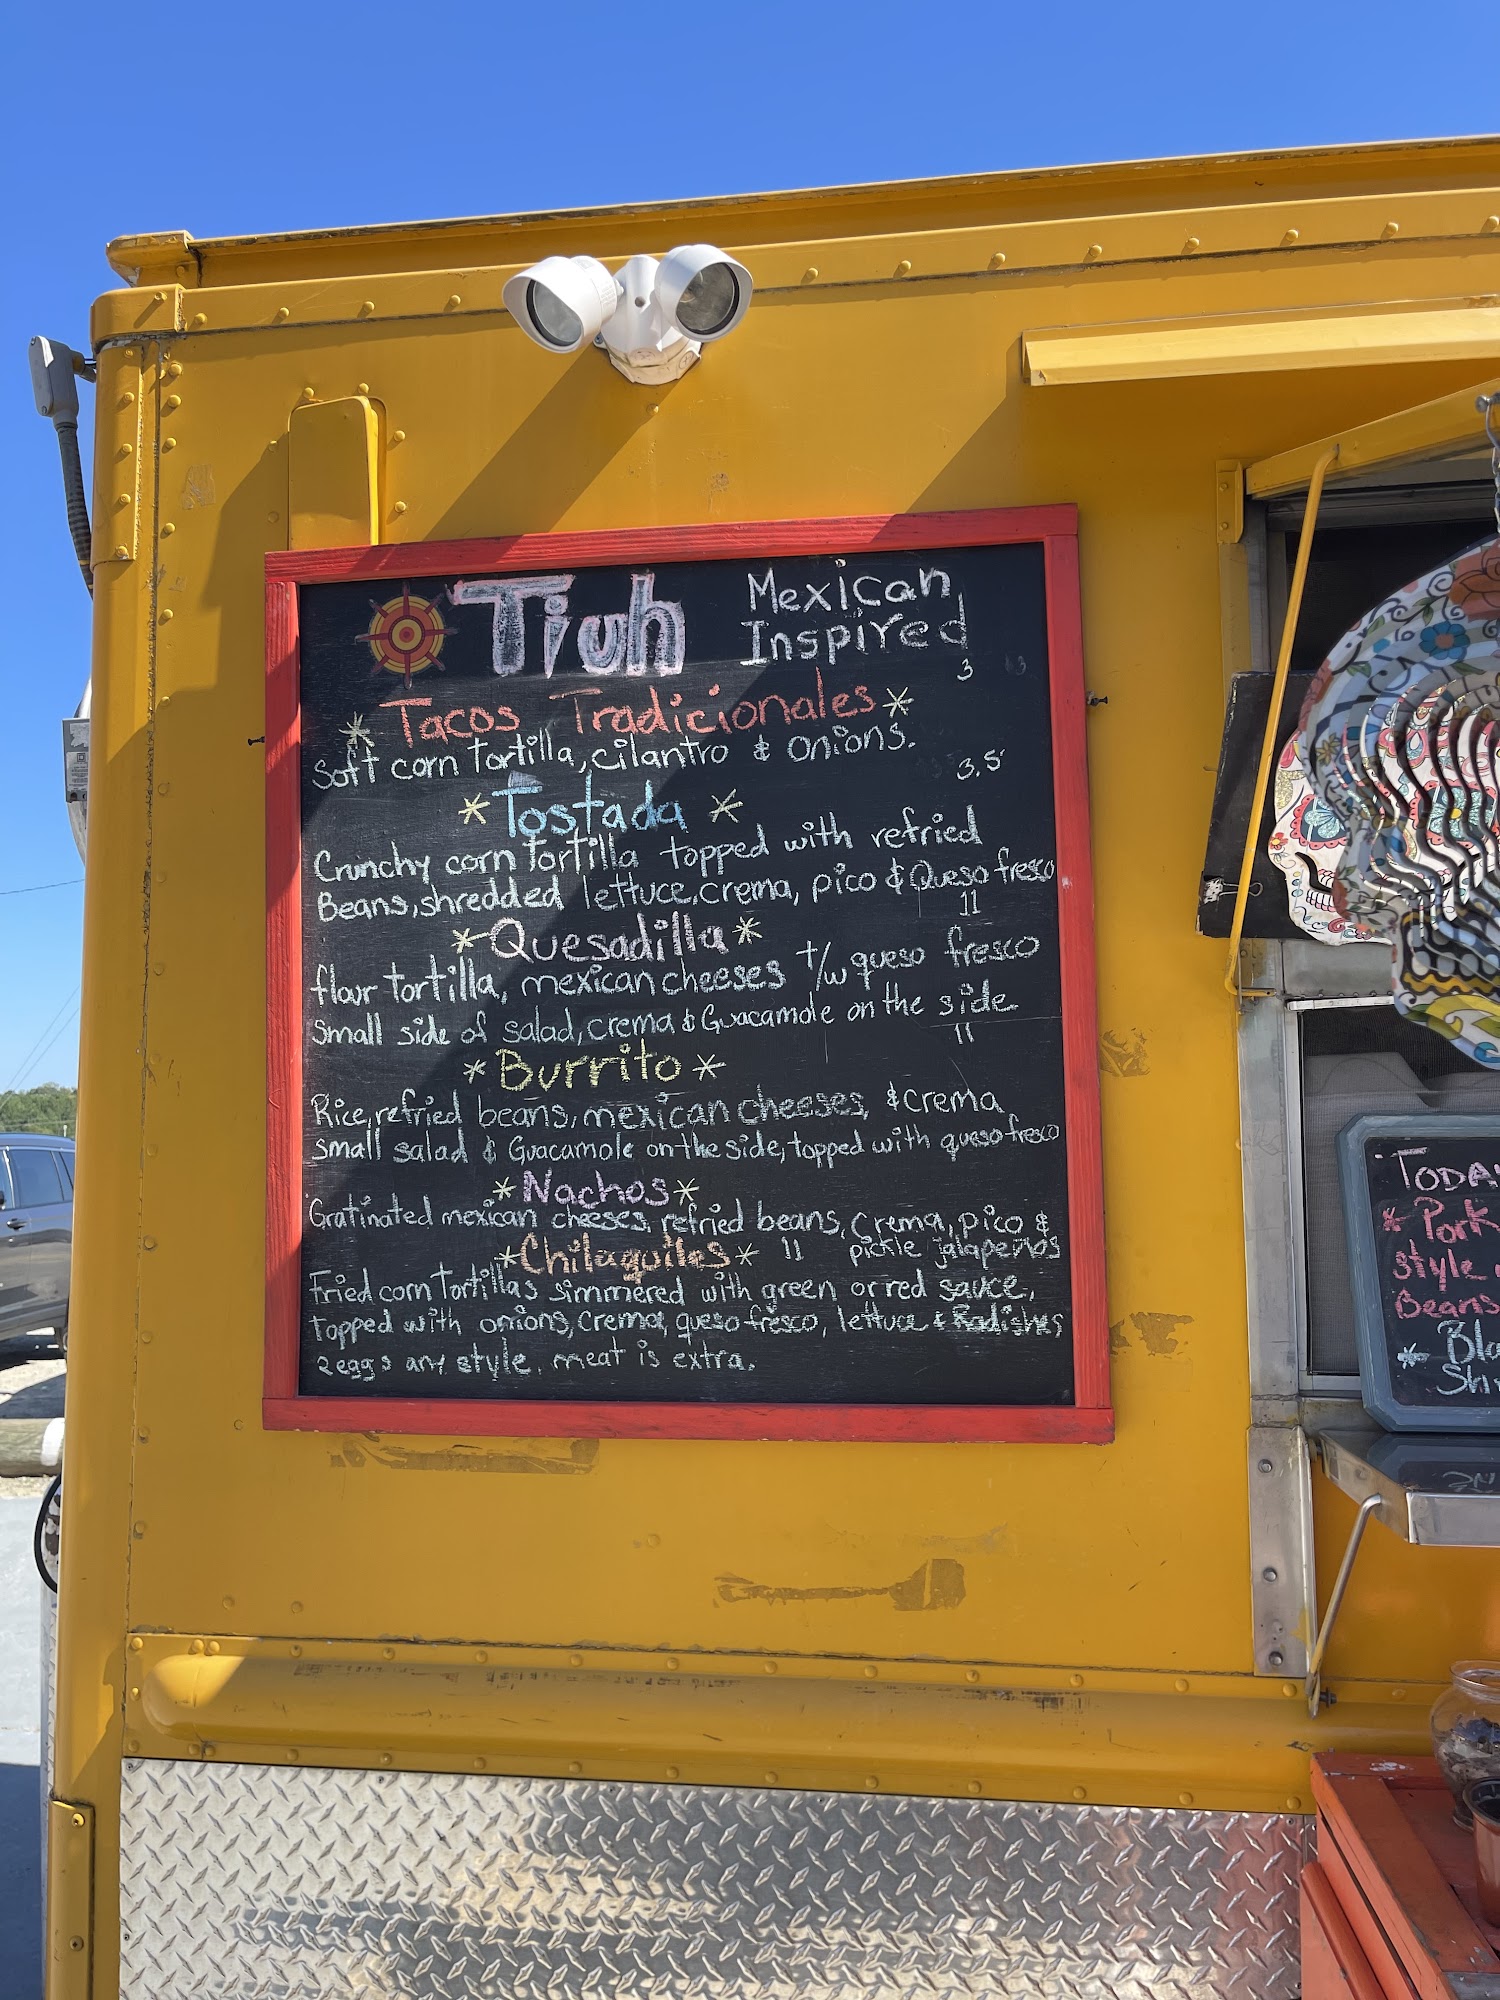 Tiuh Mexican
Inspired
3
* Tacos Tradicionales *
Soft corn tortilla, cilantro & onions.
3.5
* Tostada *
Crunchy corn tortilla topped with refried
Beans, shredded lettuce, crema, pico & Queso fresco
11
* Quesadilla *
flour tortilla, mexican cheeses t/w queso fresco
Small side of salad, crema & Guacamole on the side
11
* Burrito *
Rice, refried beans, mexican cheeses, & crema,
small salad & Guacamole on the side, topped with queso fresco
* Nachos *
Gratinated mexican cheeses, refried beans, crema, pico &
pickle jalapeños
* Chilaquiles * 11
Fried corn tortillas simmered with green or red sauce,
topped with onions, crema, queso fresco, lettuce & Radishes
2 eggs any style, meat is extra.
* Pork
style
Beans